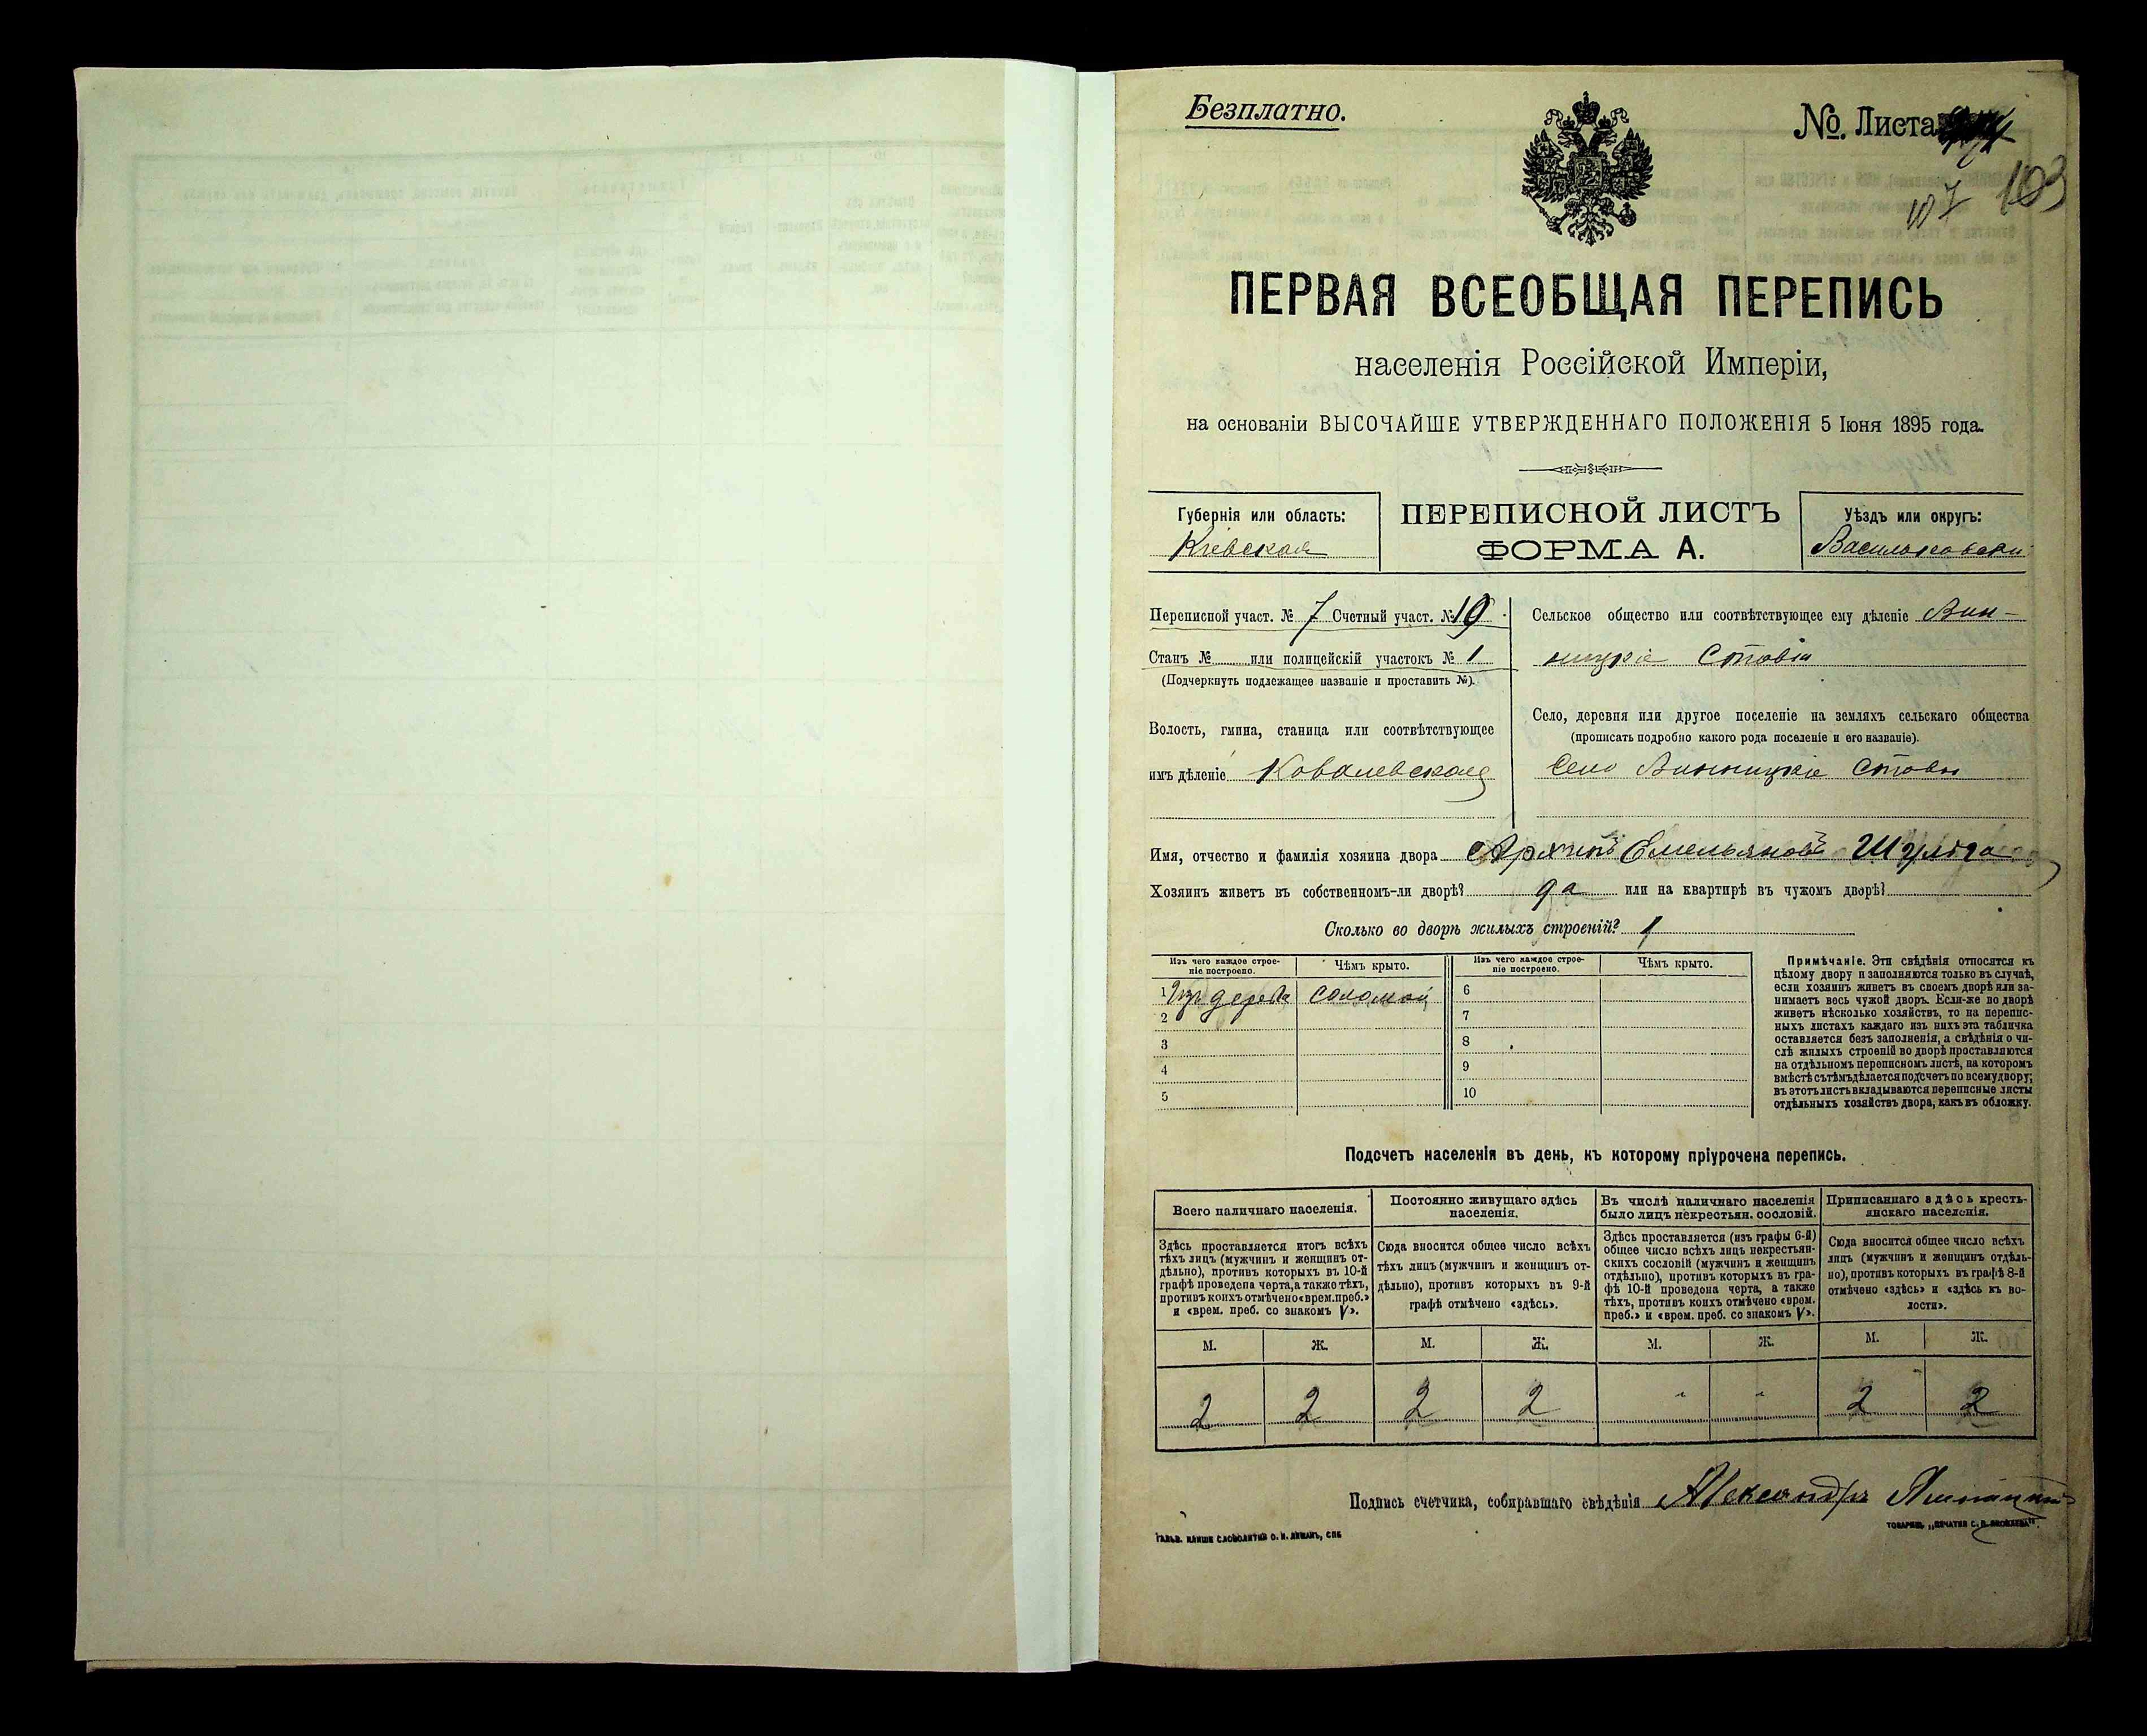 Безплатно.
№. Листа
107 103
ПЕРВАЯ ВСЕОБЩАЯ ПЕРЕПИСЬ
населенія Россійской Имперіи,
на основаніи ВЫСОЧАЙШЕ УТВЕРЖДЕННАГО ПОЛОЖЕНІЯ 5 Іюня 1895 года.
Губернія или область:
Кіевская
ПЕРЕПИСНОЙ ЛИСТЪ
ФОРМА А.
Уѣздъ или округъ:
Васильковскій
Переписной участ. № 7 Счетный участ. № 19
Станъ № или полицейскій участокъ № 1
(Подчеркнуть подлежащее названіе и проставить №).
Волость, гмина, станица или соотвѣтствующее
имъ дѣленіе Ковалевская
Сельское общество или соотвѣтствующее ему дѣленіе Вин-
ницкіе Ставы
Село, деревня или другое поселеніе на земляхъ сельскаго общества
(прописать подробно какого рода поселеніе и его названіе).
Село Винницкіе Ставы
Имя, отчество и фамилія хозяина двора Архипъ Емельяновъ Шуляга
Хозяинъ живетъ въ собственномъ-ли дворѣ? да или на квартирѣ въ чужомъ дворѣ?
Сколько во дворѣ жилыхъ строеній? 1
Изъ чего каждое строе-
ніе построено.
Чѣмъ крыто.
Изъ чего каждое строе-
ніе построено.
Чѣмъ крыто.
1 Изъ дерева соломой 6
2 7
3 8
4 9
5 10
Примѣчаніе. Эти свѣдѣнія относятся къ
цѣлому двору и заполняются только въ случаѣ,
если хозяинъ живетъ въ своемъ дворѣ или за-
нимаетъ весь чужой дворъ. Если-же во дворѣ
живетъ нѣсколько хозяйствъ, то на перепис-
ныхъ листахъ каждаго изъ нихъ эта табличка
оставляется безъ заполненія, а свѣдѣнія о чи-
слѣ жилыхъ строеній во дворѣ проставляются
на отдѣльномъ переписномъ листѣ, на которомъ
вмѣстѣ съ тѣмъ дѣлается подсчетъ по всему двору;
въ этотъ листъ вкладываются переписные листы
отдѣльныхъ хозяйствъ двора, какъ въ обложку.
Подсчетъ населенія въ день, къ которому пріурочена перепись.
Всего наличнаго населенія.
Здѣсь проставляется итогъ всѣхъ
тѣхъ лицъ (мужчинъ и женщинъ от-
дѣльно), противъ которыхъ въ 10-й
графѣ проведена черта, а также тѣхъ,
противъ коихъ отмѣчено «врем. преб.»
и «врем. преб. со знакомъ V».
Постоянно живущаго здѣсь
населенія.
Сюда вносится общее число всѣхъ
тѣхъ лицъ (мужчинъ и женщинъ от-
дѣльно), противъ которыхъ въ 9-й
графѣ отмѣчено «здѣсь».
Въ числѣ наличнаго населенія
было лицъ некрестьян. сословій.
Здѣсь проставляется (изъ графы 6-й)
общее число всѣхъ лицъ некрестьян-
скихъ сословій (мужчинъ и женщинъ
отдѣльно), противъ которыхъ въ гра-
фѣ 10-й проведена черта, а также
тѣхъ, противъ коихъ отмѣчено «врем.
преб.» и «врем. преб. со знакомъ V».
Приписаннаго здѣсь кресть-
янскаго населенія.
Сюда вносится общее число всѣхъ
лицъ (мужчинъ и женщинъ отдѣль-
но), противъ которыхъ въ графѣ 8-й
отмѣчено «здѣсь» и «здѣсь къ во-
лости».
М. Ж. М. Ж. М. Ж. М. Ж.
2 2 2 2 " " 2 2
Подпись счетчика, собиравшаго свѣдѣнія Александръ
ГАЛЬВ. КЛИШЕ СЛОВОЛИТНИ О. И. ЛЕМАНЪ, СПБ
ТОВАРИЩ. „ПЕЧАТНЯ С. П. ЯКОВЛЕВА".